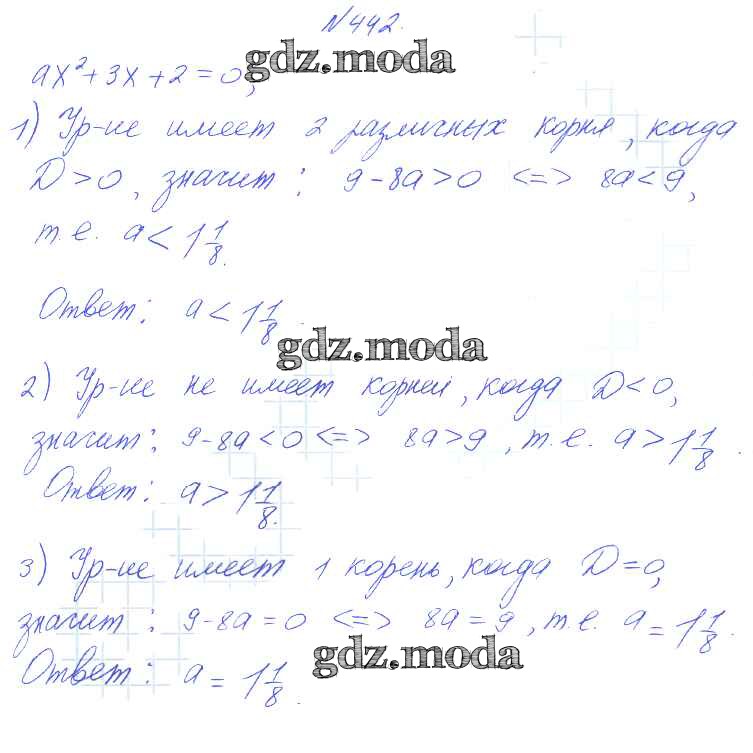 №442.
gdz.moda
ax²+3x+2=0,
1) Ур-ие имеет 2 различных корня, когда
D>0, значит: 9-8a>0 <=> 8a<9,
т.е. a<1 1/8.
Ответ: a<1 1/8.
gdz.moda
2) Ур-ие не имеет корней, когда D<0,
значит: 9-8a<0 <=> 8a>9, т.е. a>1 1/8.
Ответ: a>1 1/8.
3) Ур-ие имеет 1 корень, когда D=0,
значит: 9-8a=0 <=> 8a=9, т.е. a=1 1/8.
gdz.moda
Ответ: a=1 1/8.